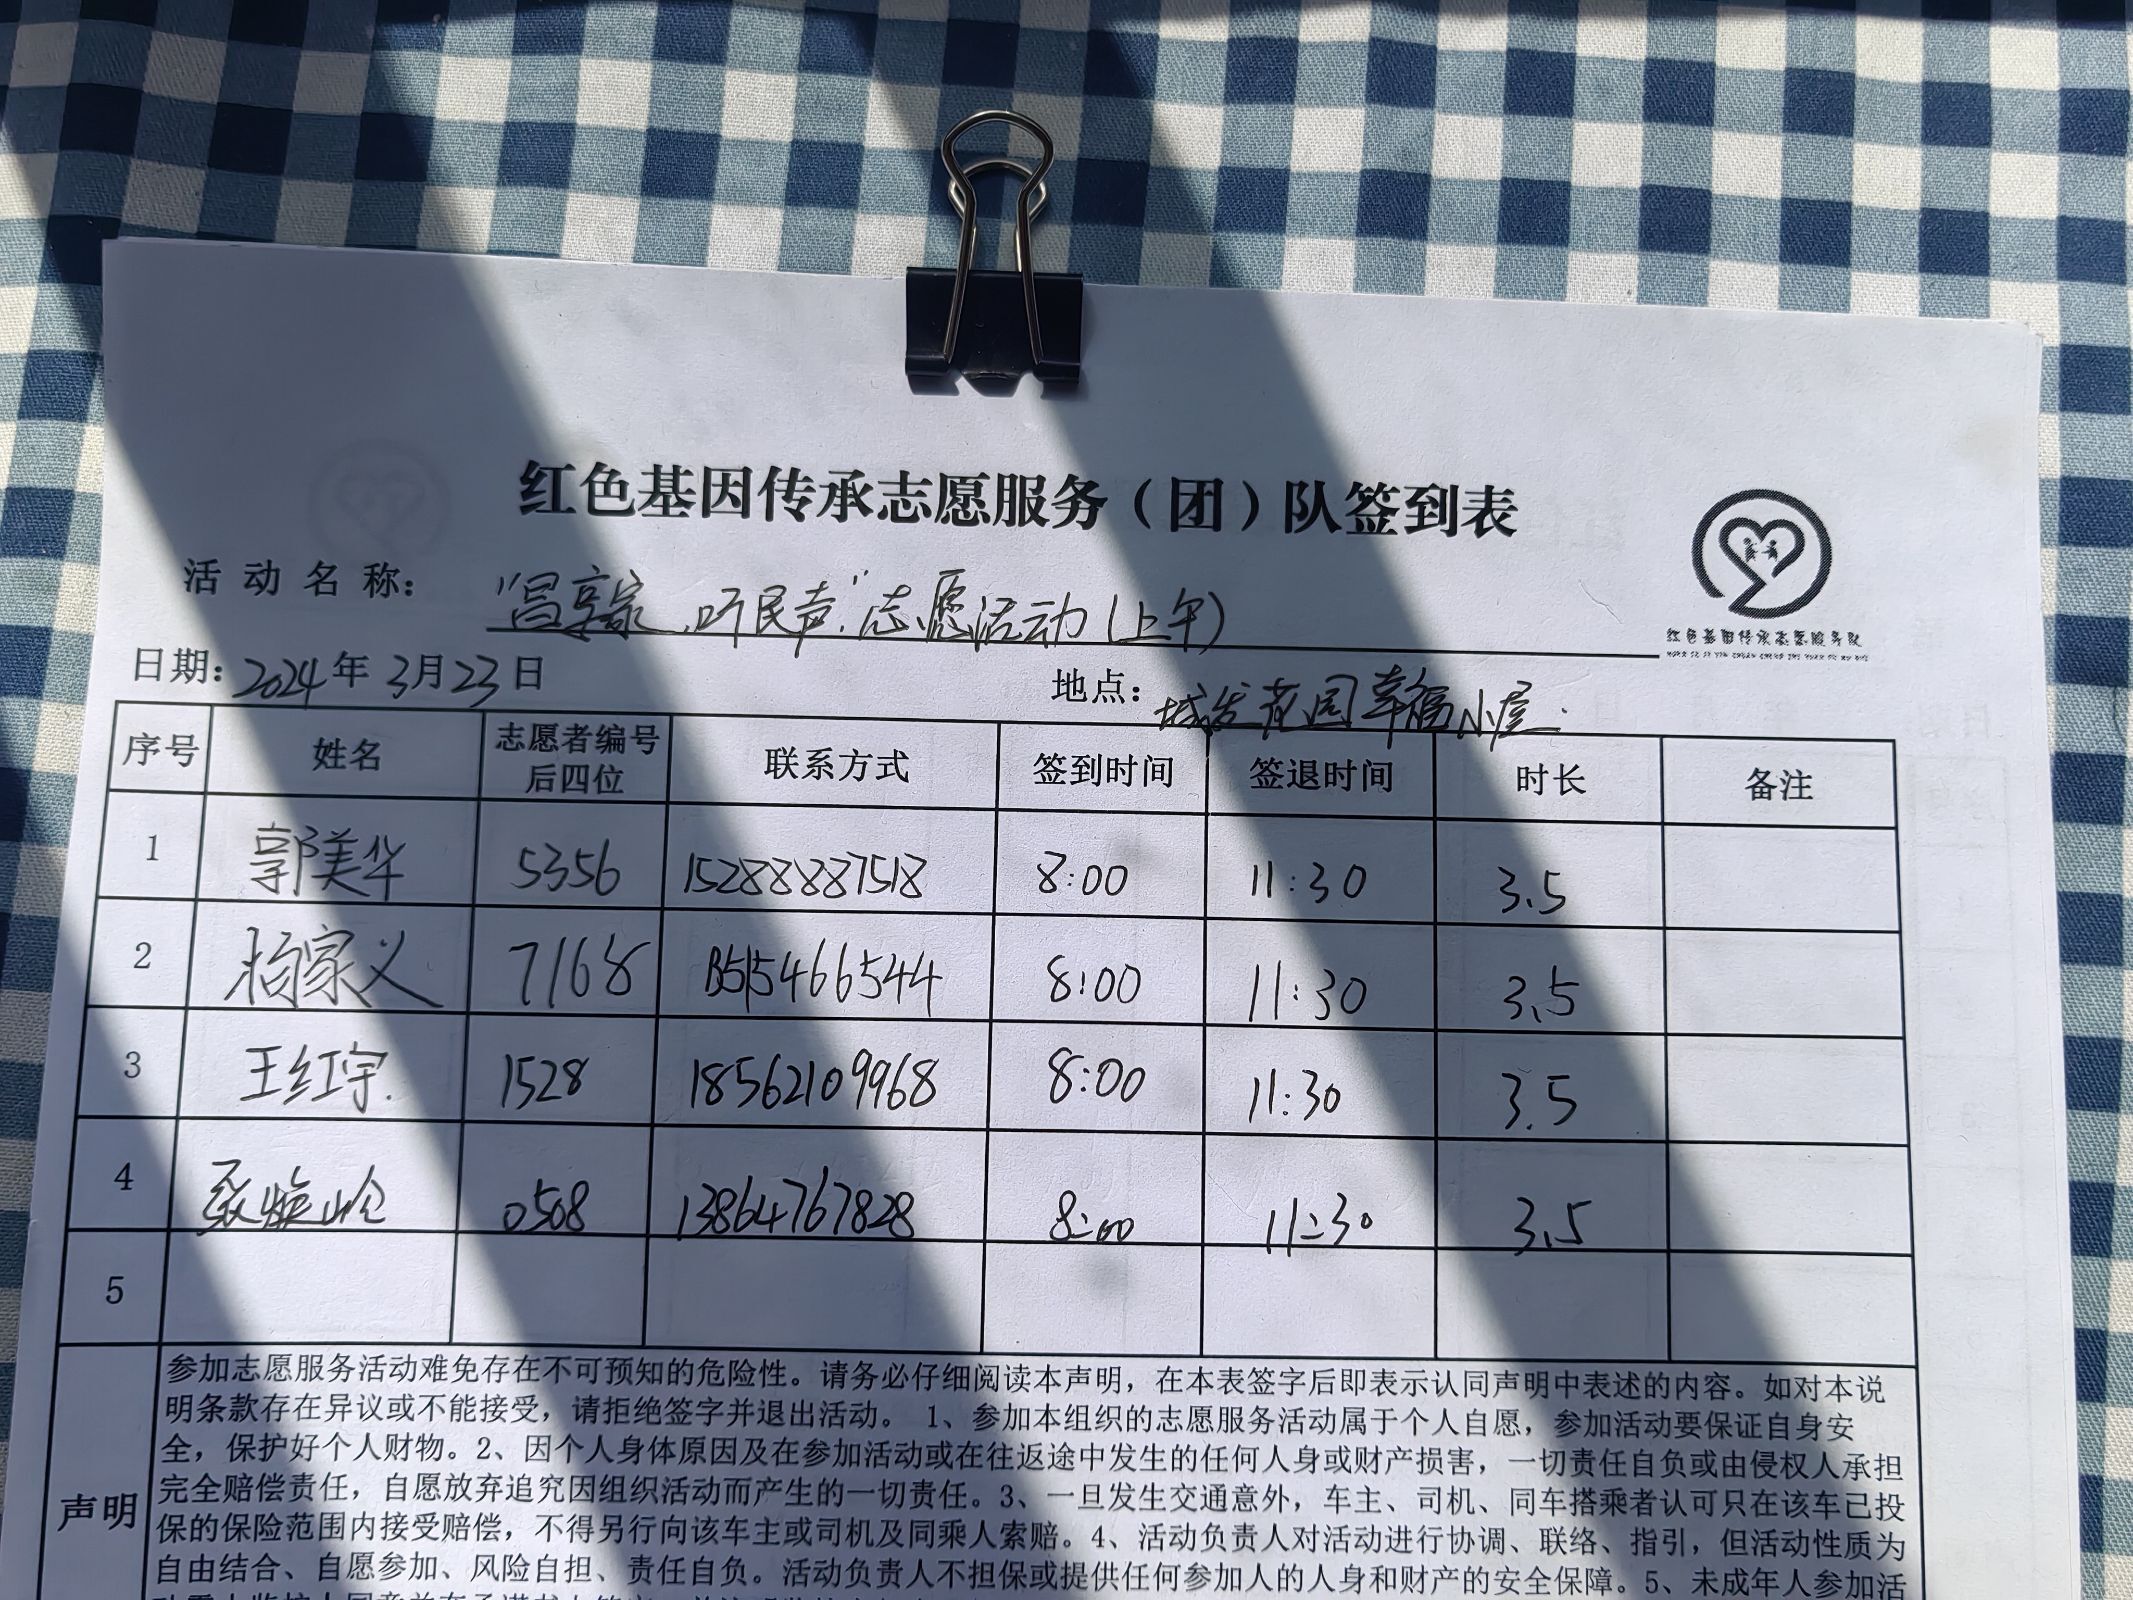 红色基因传承志愿服务（团）队签到表
活动名称： “昌享家，听民声”志愿活动（上午）
红色基因传承志愿服务队
日期：2024年3月23日 地点：城发花园幸福小屋.
序号 姓名 志愿者编号后四位 联系方式 签到时间 签退时间 时长 备注
1 郭美华 5356 15288887518 8:00 11:30 3.5
2 杨家义 7168 13515466544 8:00 11:30 3.5
3 王红宇 1528 18562109968 8:00 11:30 3.5
4 张焕岭 0568 13864767828 8:00 11:30 3.5
5
声明
参加志愿服务活动难免存在不可预知的危险性。请务必仔细阅读本声明，在本表签字后即表示认同声明中表述的内容。如对本说
明条款存在异议或不能接受，请拒绝签字并退出活动。 1、参加本组织的志愿服务活动属于个人自愿，参加活动要保证自身安
全，保护好个人财物。2、因个人身体原因及在参加活动或在往返途中发生的任何人身或财产损害，一切责任自负或由侵权人承担
完全赔偿责任，自愿放弃追究因组织活动而产生的一切责任。3、一旦发生交通意外，车主、司机、同车搭乘者认可只在该车已投
保的保险范围内接受赔偿，不得另行向该车主或司机及同乘人索赔。4、活动负责人对活动进行协调、联络、指引，但活动性质为
自由结合、自愿参加、风险自担、责任自负。活动负责人不担保或提供任何参加人的人身和财产的安全保障。5、未成年人参加活